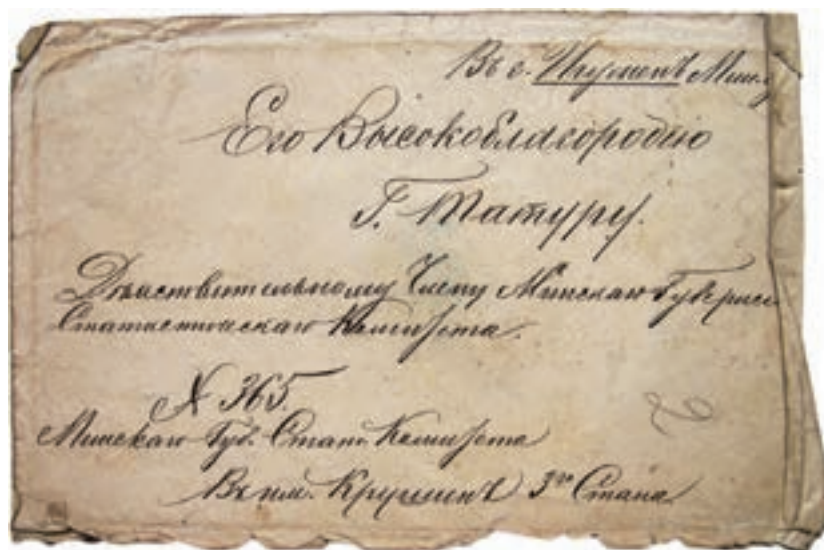 Въ г. Игуменъ Мин.
Его Высокоблагородію
Г. Татуру.
Дѣйствительному Члену Минскаго Губернс
Статистическаго Комитета.
№ 365.
Минскаго Губ. Стат. Комитета
Въ им. 3го Стана